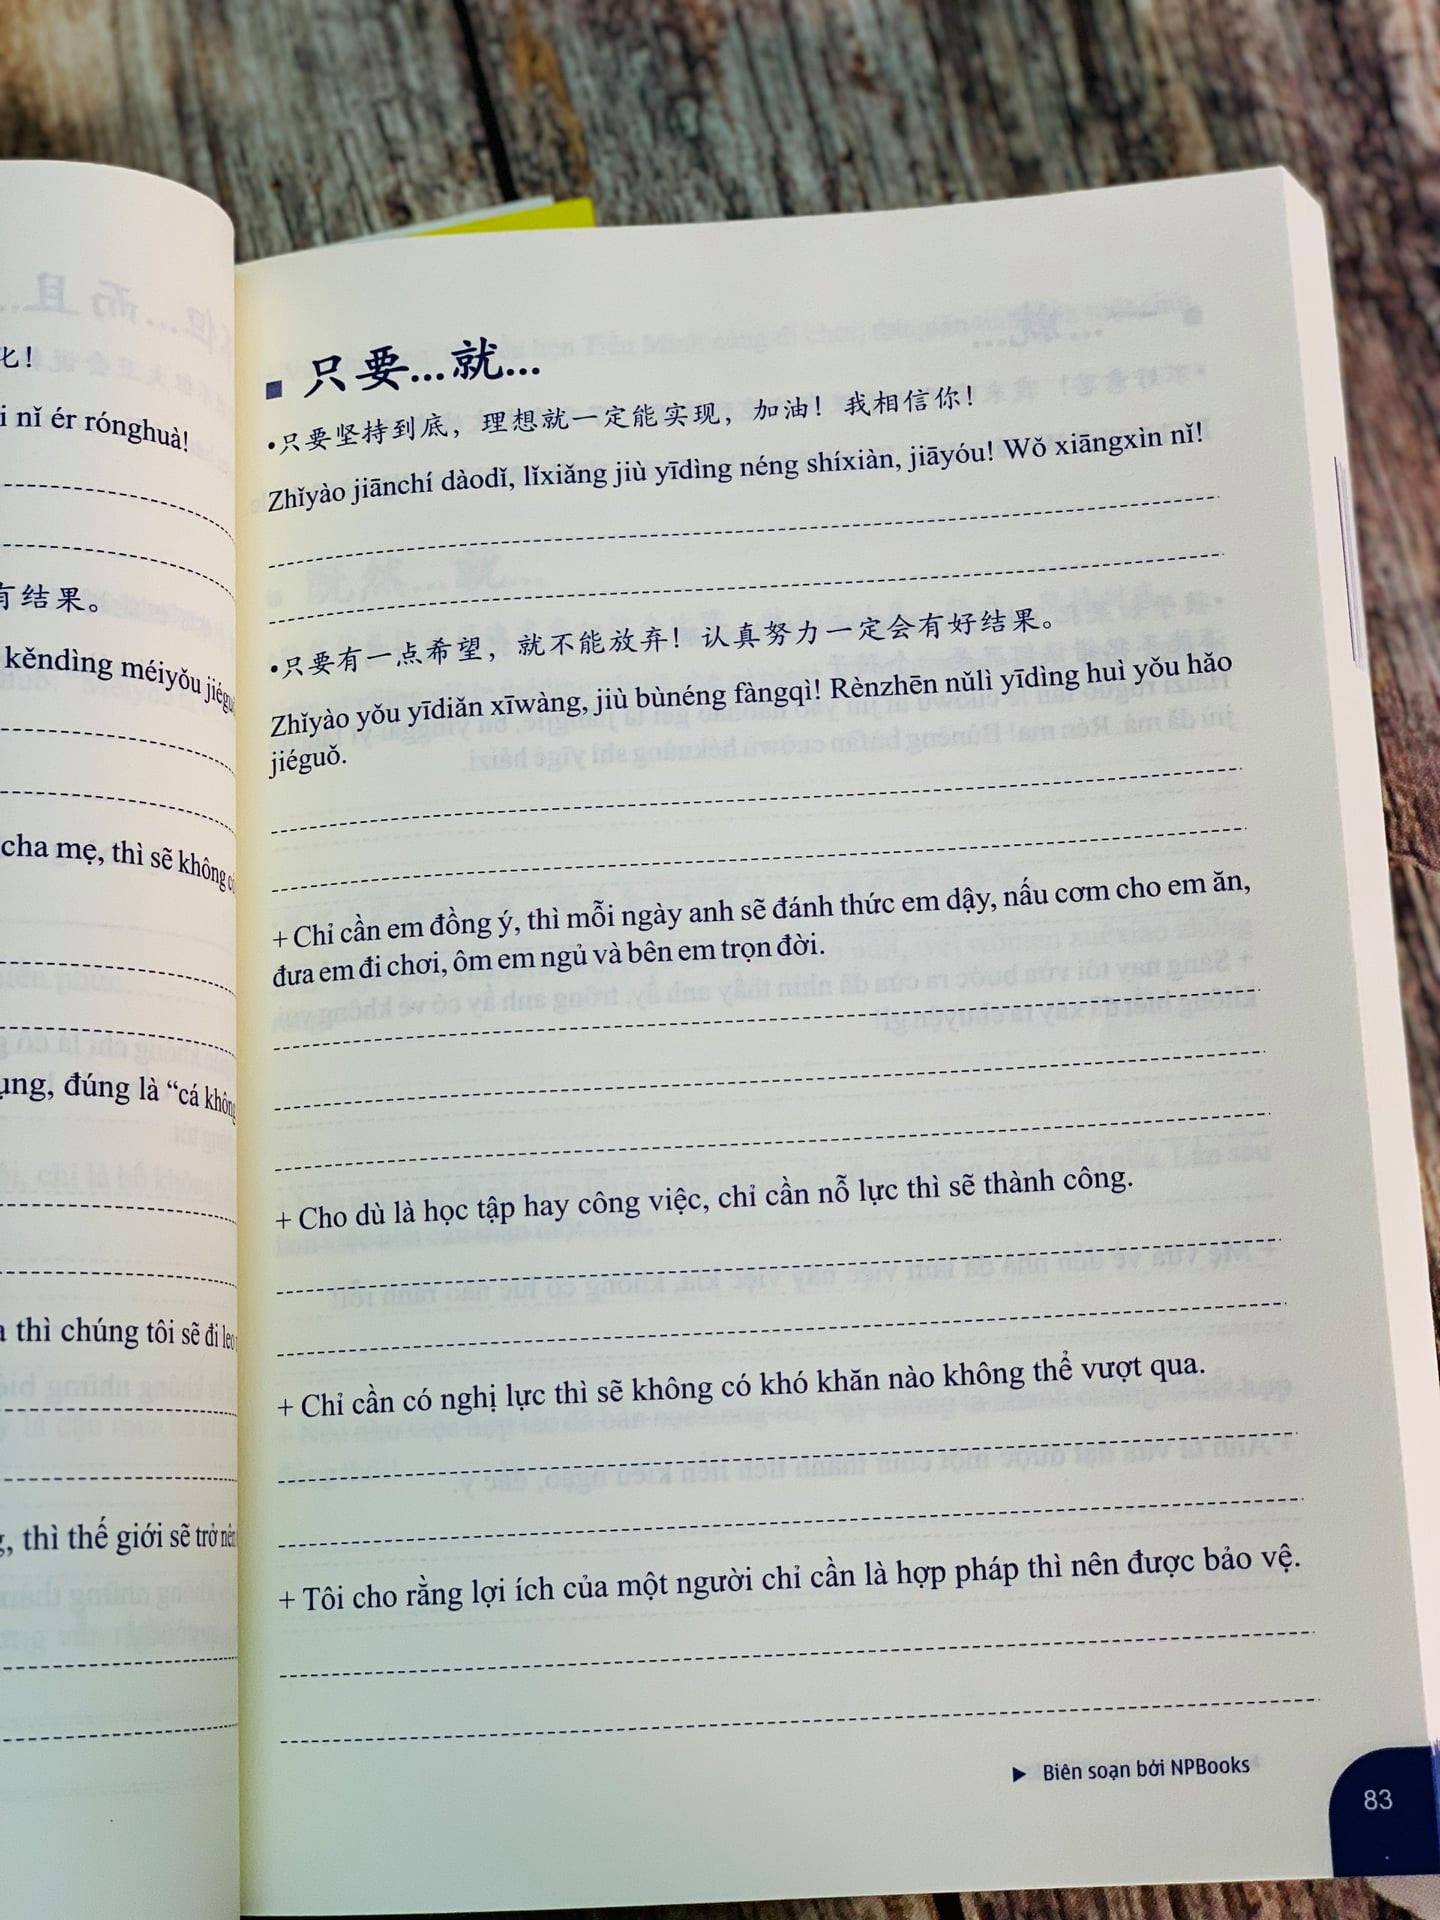 匕！
i nǐ ér rónghuà!
有结果。
kěndìng méiyǒu
cha mẹ, thì sẽ không
đúng là “cá không
thì chúng tôi sẽ đi
thì thế giới sẽ trở
只要...就...
•只要坚持到底，理想就一定能实现，加油！我相信你！
Zhǐyào jiānchí dàodǐ, lǐxiǎng jiù yīdìng néng shíxiàn, jiāyóu! Wǒ xiāngxìn nǐ!
•只要有一点希望，就不能放弃！认真努力一定会有好结果。
Zhǐyào yǒu yīdiǎn xīwàng, jiù bùnéng fàngqì! Rènzhēn nǔlì yīdìng huì yǒu hǎo
jiéguǒ.
+ Chỉ cần em đồng ý, thì mỗi ngày anh sẽ đánh thức em dậy, nấu cơm cho em ăn,
đưa em đi chơi, ôm em ngủ và bên em trọn đời.
+ Cho dù là học tập hay công việc, chỉ cần nỗ lực thì sẽ thành công.
+ Chỉ cần có nghị lực thì sẽ không có khó khăn nào không thể vượt qua.
+ Tôi cho rằng lợi ích của một người chỉ cần là hợp pháp thì nên được bảo vệ.
▶ Biên soạn bởi NPBooks
83